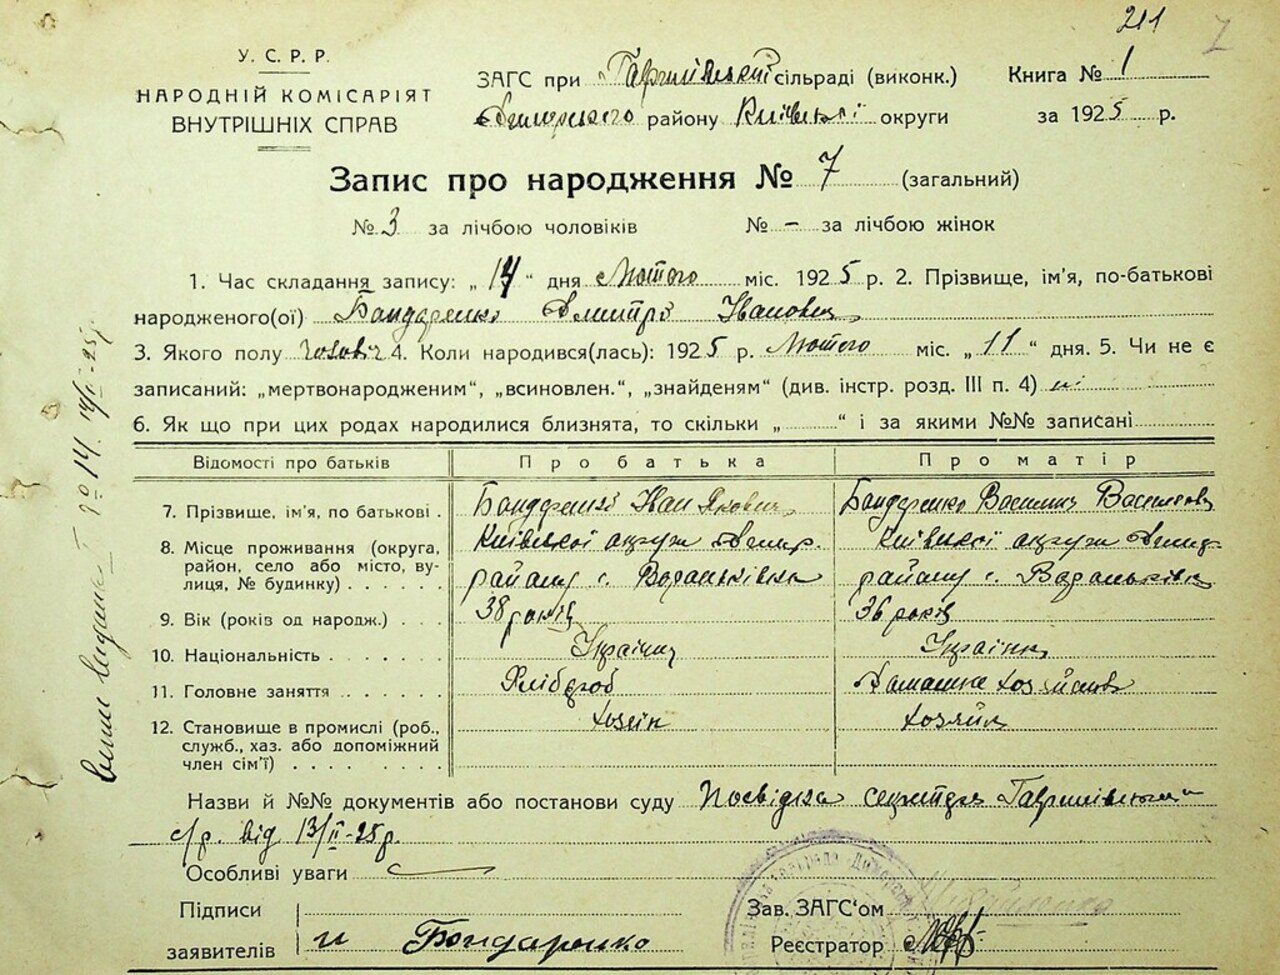 211
У. С. Р. Р.
НАРОДНІЙ КОМІСАРІЯТ
ВНУТРІШНІХ СПРАВ
ЗАГС при Гаврилівській сільраді (виконк.)
Димерського району Київської округи
Книга № 1
за 1925 р.
Запис про народження № 7 (загальний)
№ 3 за лічбою чоловіків № – за лічбою жінок
1. Час складання запису: „14“ дня Лютого міс. 1925 р. 2. Прізвище, ім'я, по-батькові
народженого(ої) Бондаренко Дмитро Іванович
3. Якого полу чолович 4. Коли народився(лась): 1925 р. Лютого міс. „11“ дня. 5. Чи не є
записаний: „мертвонародженим“, „всиновлен.“, „знайденям“ (див. інстр. розд. III п. 4) ні
6. Як що при цих родах народилися близнята, то скільки „ “ і за якими №№ записані
Відомості про батьків Про батька Про матір
7. Прізвище, ім'я, по батькові . Бондаренко Іван Якович Бондаренко Василина Василівна
8. Місце проживання (округа, Київської округи Димер. Київської округи Димер.
район, село або місто, ву-
лиця, № будинку) . . . . . району с. Вороньківка району с. Вороньківка
9. Вік (років од народж.) . . . 38 років 36 років
10. Національність . . . . . . Українець Українка
11. Головне заняття . . . . . . Хлібороб Домашнє хозяйство
12. Становище в промислі (роб., хозяїн хозяйка
служб., хаз. або допоміжний
член сім'ї) . . . . . . . .
Назви й №№ документів або постанови суду Посвідка секретаря Гаврилівської
с/р. від 13/II-25р.
Особливі уваги
Підписи
заявителів и Бондаренко
Зав. ЗАГС'ом
Реєстратор